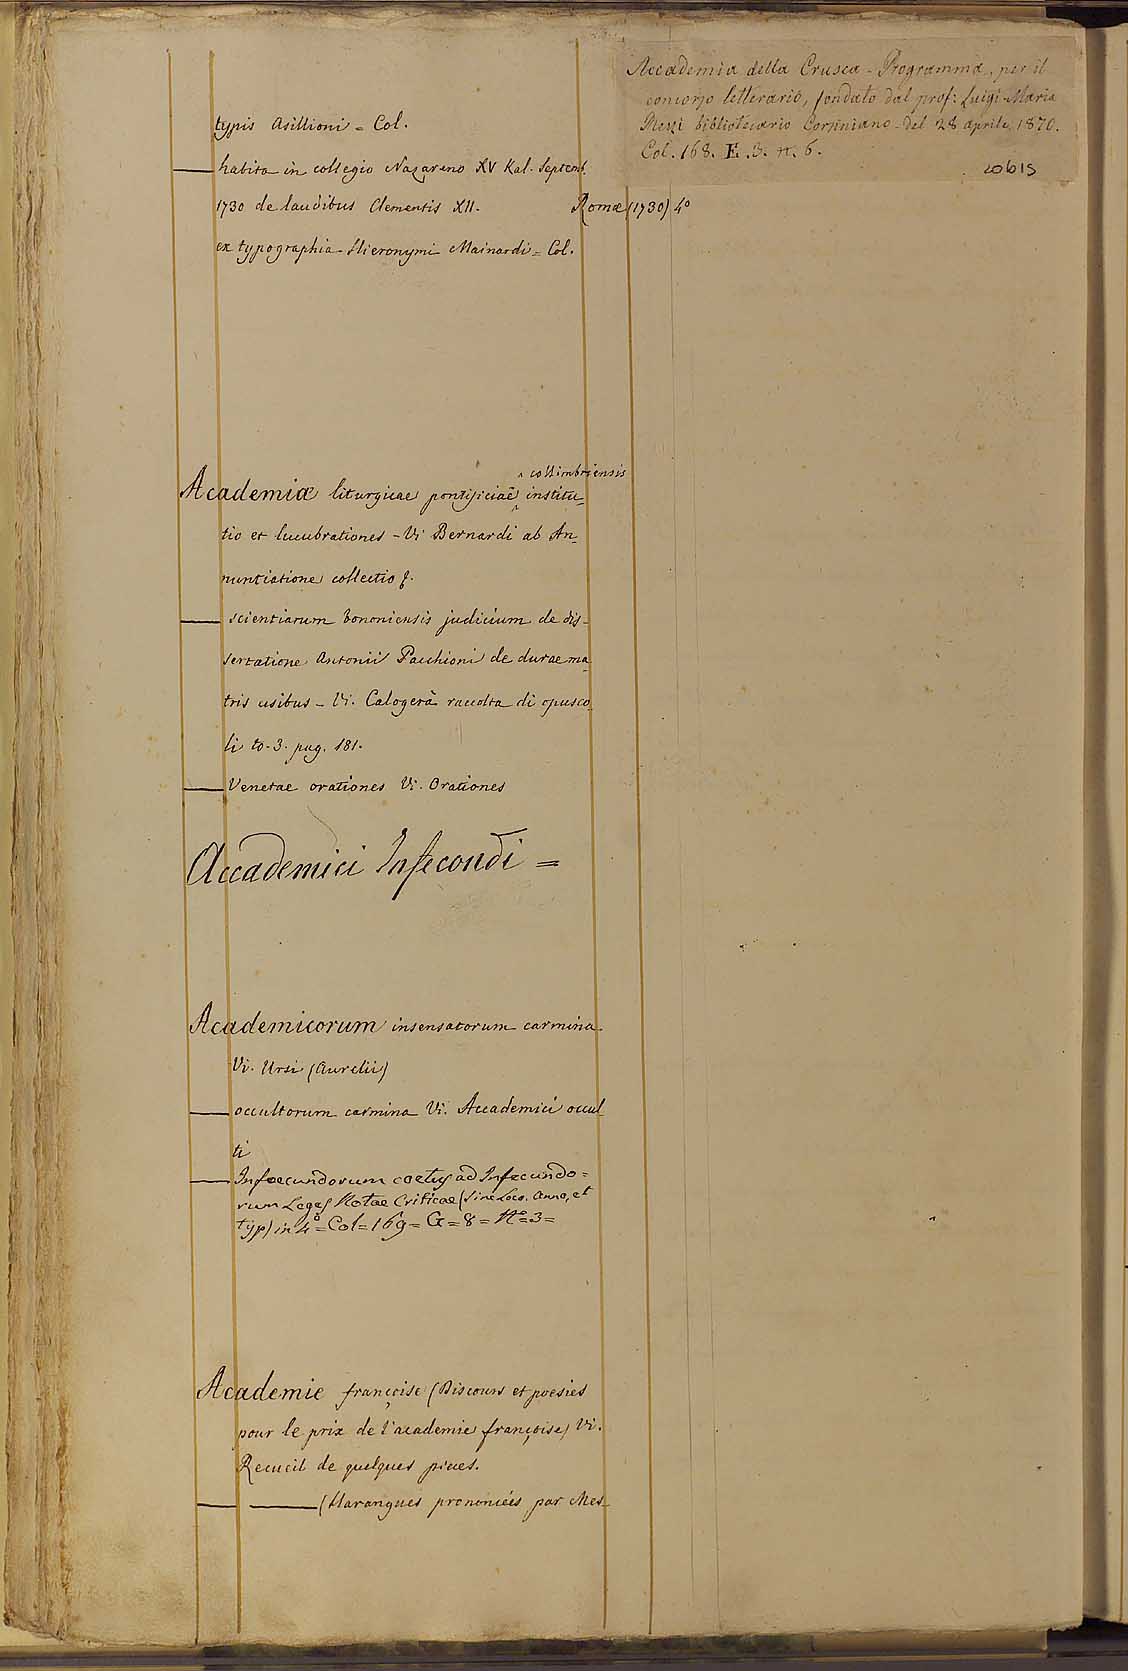 Accademia della Crusca - Programma, per il
concorso letterario, fondato dal prof: Luigi-Maria
Rezzi bibliotecario Corsiniano - del 28 aprile 1870.
Col. 168. E. 3. n. 6.
20619
typis Asillioni = Col.
— habita in collegio Nazareno XV Kal. Septemb.
1730 de laudibus Clementis XII. Romæ (1730) 4°
ex typographia Hieronymi Mainardi = Col.
collimbriensis
Academiæ liturgicae pontificiae institu-
tio et lucubrationes - Vi Bernardi ab An-
nuntiatione collectio
— scientiarum bononiensis judicium de dis-
sertatione Antonii Pacchioni de durae ma-
tris usibus - Vi. Calogerà raccolta di opusco-
li to. 3. pag. 181.
— Venetae orationes Vi. Orationes
Accademici Infecondi =
Academicorum insensatorum carmina.
Vi. Ursi (Aurelii)
— occultorum carmina Vi. Accademici occul-
ti
— Infoecundorum coetus ad Infecundo=
rum Leges Notae Criticae (Sine Loco, Anno, et
typ) in 4° = Col = 169 = G = 8 = N° = 3 =
Academie françoise (Discours et poesies
pour le prix de l'academie françoise) Vi.
Recueil de quelques pieces.
— — (Harangues prononcées par Mes-